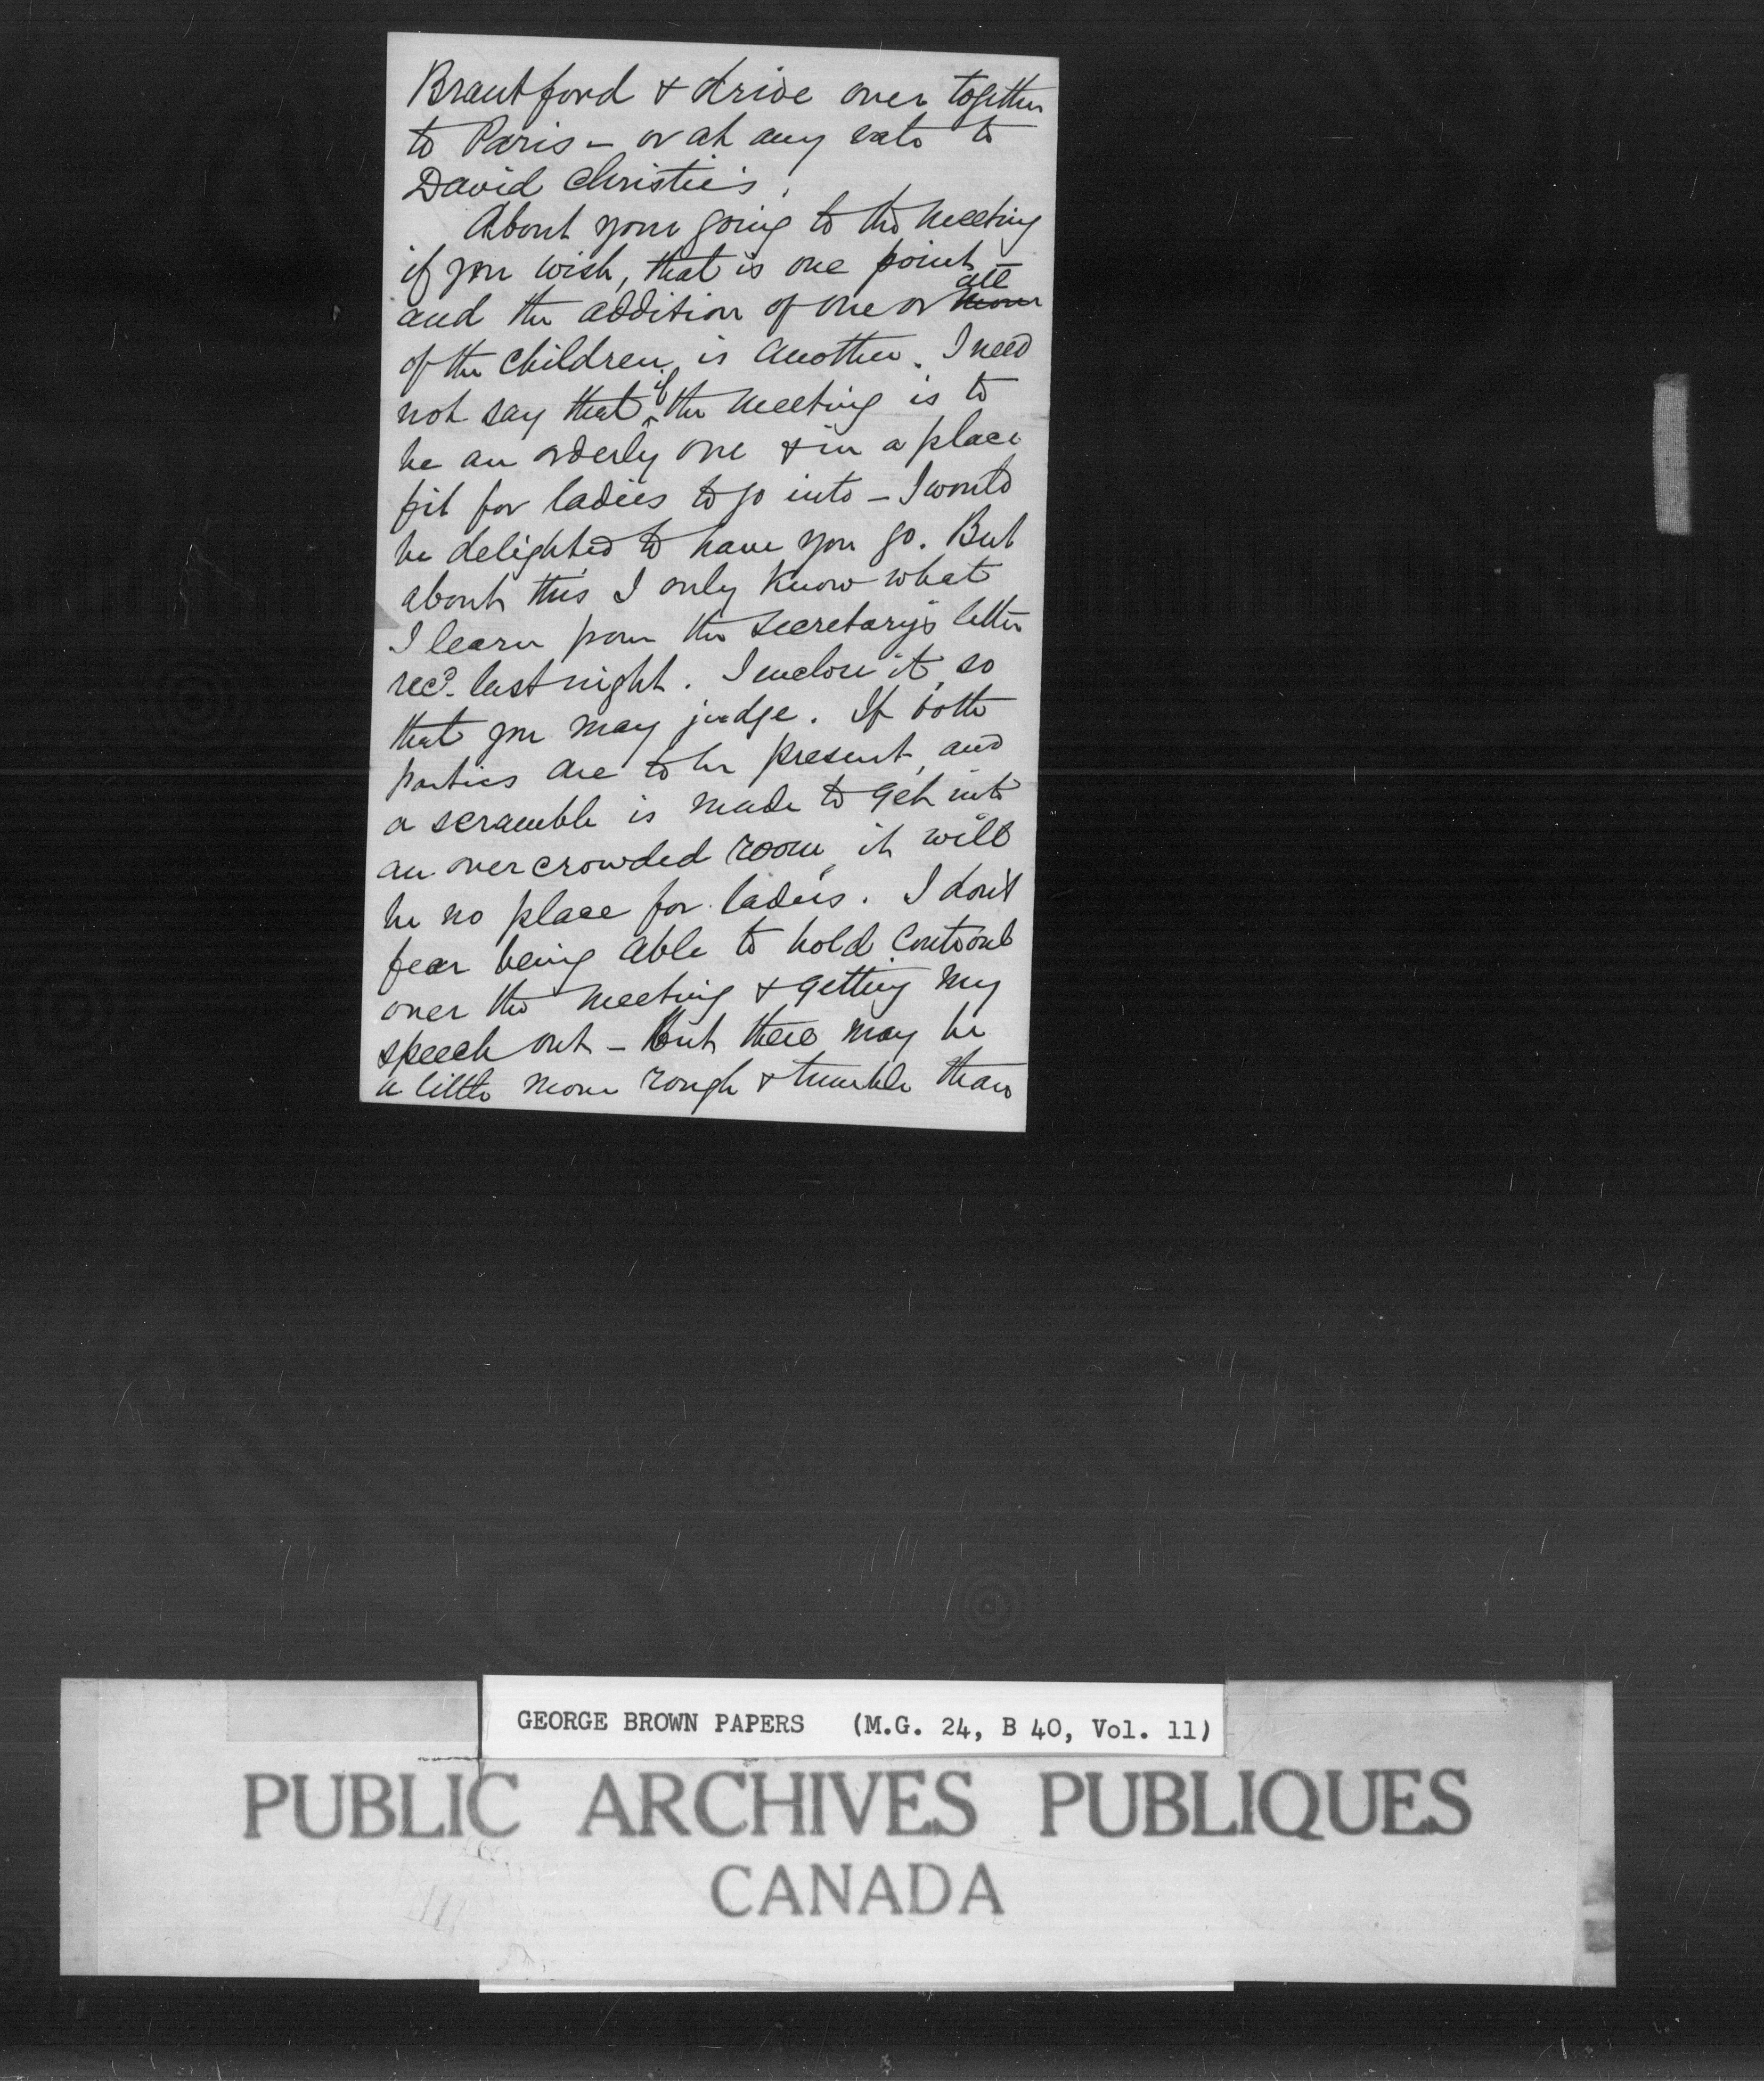 Brantford & drive over together
to Paris - or at any rate to
David Christie's.
About your going to the meeting
if you wish, that is one point -
and the addition of one or more all
of the children, is another. I need
not say that if the meeting is to
be an orderly one & in a place
fit for ladies to go into - I would
be delighted to have you go. But
about this I only know what
I learn from the Secretary's letter
rec'd last night. I enclose it, so
that you may judge. If both
parties are to be present, and
a scramble is made to get into
an overcrowded room, it will
be no place for ladies. I don't
fear being able to hold controul
over the meeting & getting my
speech out - but there may be
a little more rough & tumble than
GEORGE BROWN PAPERS (M.G. 24, B 40, Vol. 11)
PUBLIC ARCHIVES PUBLIQUES
CANADA